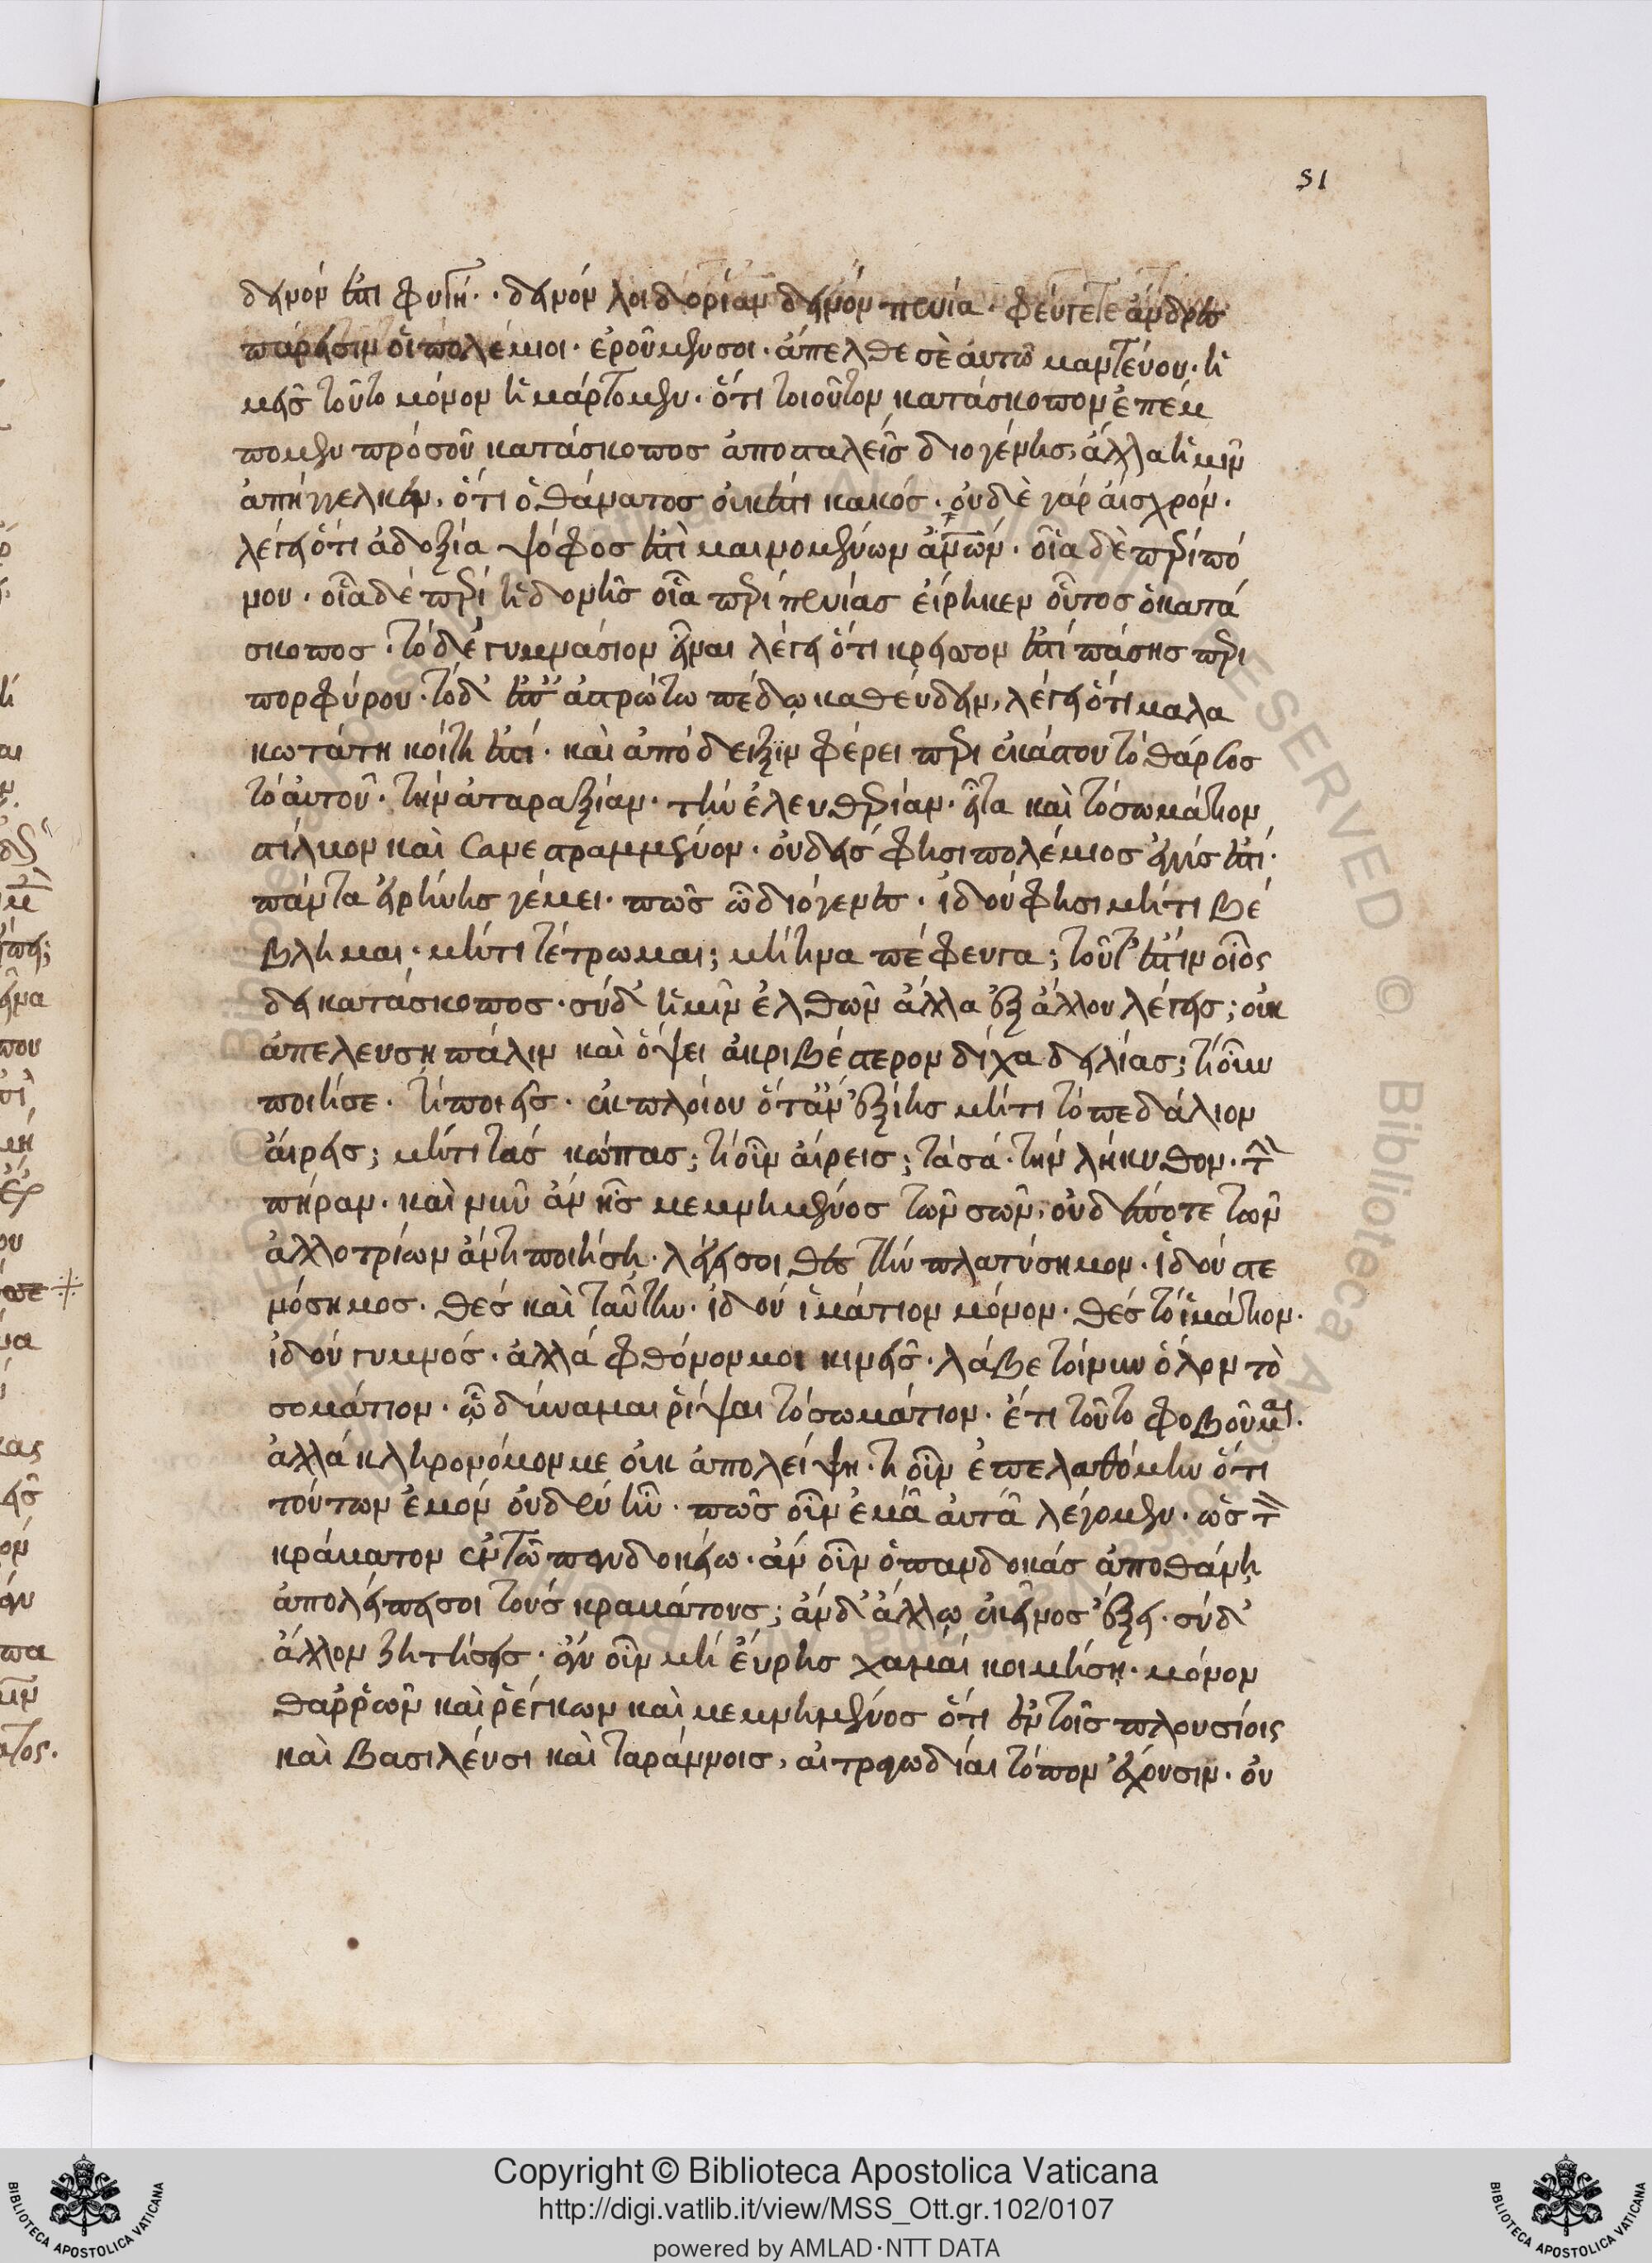 51
δεινόν ἐστι φυγή· δεινόν λοιδορίαν δεινόν πενία· φεύγετε ἄνδρες
πάρεισιν οἱ πολέμιοι· ἐροῦμεν σοι· ἄπελθε σὲ ἀυτῶ μαντεύου· ἡ
μεῖς τοῦτο μόνον ἡμάρτομεν· ὅτι τοιοῦτον κατάσκοπον ἐπέμ
πομεν πρόσοῦ κατάσκοπος ἀποσταλεὶς διογένης, ἄλλα ἡμῖν
ἀπήγγελκεν, ὅτι ὁ θάνατος ὀυκ ἔστι κακός· ὀυδὲ γάρ ἀισχρόν·
λέγει ὅτι ἀδοξία ψόφος ἐστὶ μαινομένων ἀν̅ω̅ν· οἷα δὲ περί πό
νου· οἷα δέ περί ἡδονῆς οἷα περί πενίας εἴρηκεν οὗτος ὁ κατά
σκοπος· τὸ δέ γυμνάσιον εἶναι λέγει ὅτι κρεῖσσον ἐστί πάσης περι
πορφύρου· τὸ δ' ἐπ' ἀστρώτω πέδω καθεύδειν, λέγει ὅτι μαλα
κωτάτη κοίτη ἐστί· καὶ ἀπόδειξιν φέρει περι ἑκάστου τὸ θάρσος
τὸ ἀυτοῦ· τὴν ἀταραξίαν· τὴν ἐλευθερίαν· εἶτα καὶ τὸ σωμάτιον
στίλβον καὶ συνεστραμμένον· ὀυδείς φησι πολέμιος ἐγγύς ἐστι·
πάντα εἰρήνης γέμει· πῶς ὦ διόγενες· ἰδού φησι μήτι βέ
βλημαι· μήτι τέτρωμαι; μήτινα πέφευγα; τοῦτ' ἔστιν οἷος
δεῖ κατάσκοπος· σύ δ' ἡμῖν ἐλθών ἄλλα ἐξ ἄλλου λέγεις; ὀυκ
ἀπελευση πάλιν καὶ ὄψει ἀκριβέστερον δίχα δειλίας; τί οὖν
ποιήσε· τί ποιεῖς· ἐκ πλοίου ὅταν ἐξίης μήτι τὸ πεδάλιον
ἄιρεις; μήτι τάς κώπας; τί οὖν ἀίρεις; τὰ σά· τὴν λήκυθον· τ
πήραν· καὶ νῦν ἄν ἦς μεμνημένος τῶν σῶν, ὀυδέποτε τῶν
ἀλλοτρίων ἀντιποιήση· λέγει σοι θές τὴν πλατύσημον· ἰδού στε
νόσημος· θές καὶ ταύτην· ἰδού ἱμάτιον μόνον· θές τὸ ἱμάτιον·
ἰδού γυμνός· ἀλλά φθόνον μοι κινεῖς· λάβε τοίνυν ὅλον τὸ
σομάτιον· ὧ δύναμαι ῥίψαι τὸ σωμάτιον· ἔτι τοῦτο φοβοῦμαι·
ἀλλά κληρονόμον με ὀυκ ἀπολείψη· τι οὖν ἐπελαθόμην ὅτι
τούτων ἐμόν ὀυδέν ἦν· πῶς οὖν ἐμᾶ ἀυτᾶ λέγομεν· ὡς τ
κράματον ἐν τῶ πανδοκείω· ἄν οὖν ὁ πανδοκεύς ἀποθάνη
ἀπολείπη σοι τούς κραμάτους; ἄν δ' ἄλλω ἐκεῖνος ἕξει· σύ δ'
ἄλλον ζητήσεις· ἄν οὖν μή εὕρης χαμαί κοιμήση· μόνον
θαῤῥῶν καὶ ῥέγκων καὶ μεμνημένος ὅτι ἐν τοῖς πλουσίοις
καὶ βασιλεύσι καὶ ταράννοις, αἱ τραγωδίαι τόπον ἔχουσιν· ὀυ
Copyright © Biblioteca Apostolica Vaticana
http://digi.vatlib.it/view/MSS_Ott.gr.102/0107
powered by AMLAD·NTT DATA